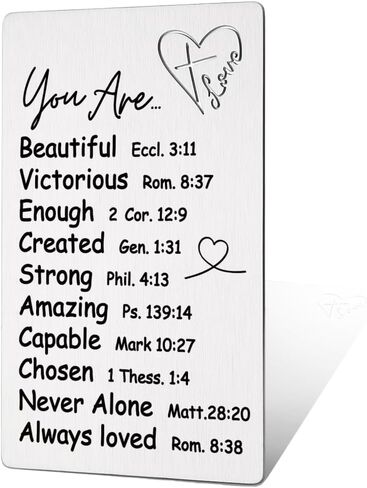 Love
You Are...
Beautiful Eccl. 3:11
Victorious Rom. 8:37
Enough 2 Cor. 12:9
Created Gen. 1:31
Strong Phil. 4:13
Amazing Ps. 139:14
Capable Mark 10:27
Chosen 1 Thess. 1:4
Never Alone Matt.28:20
Always loved Rom. 8:38